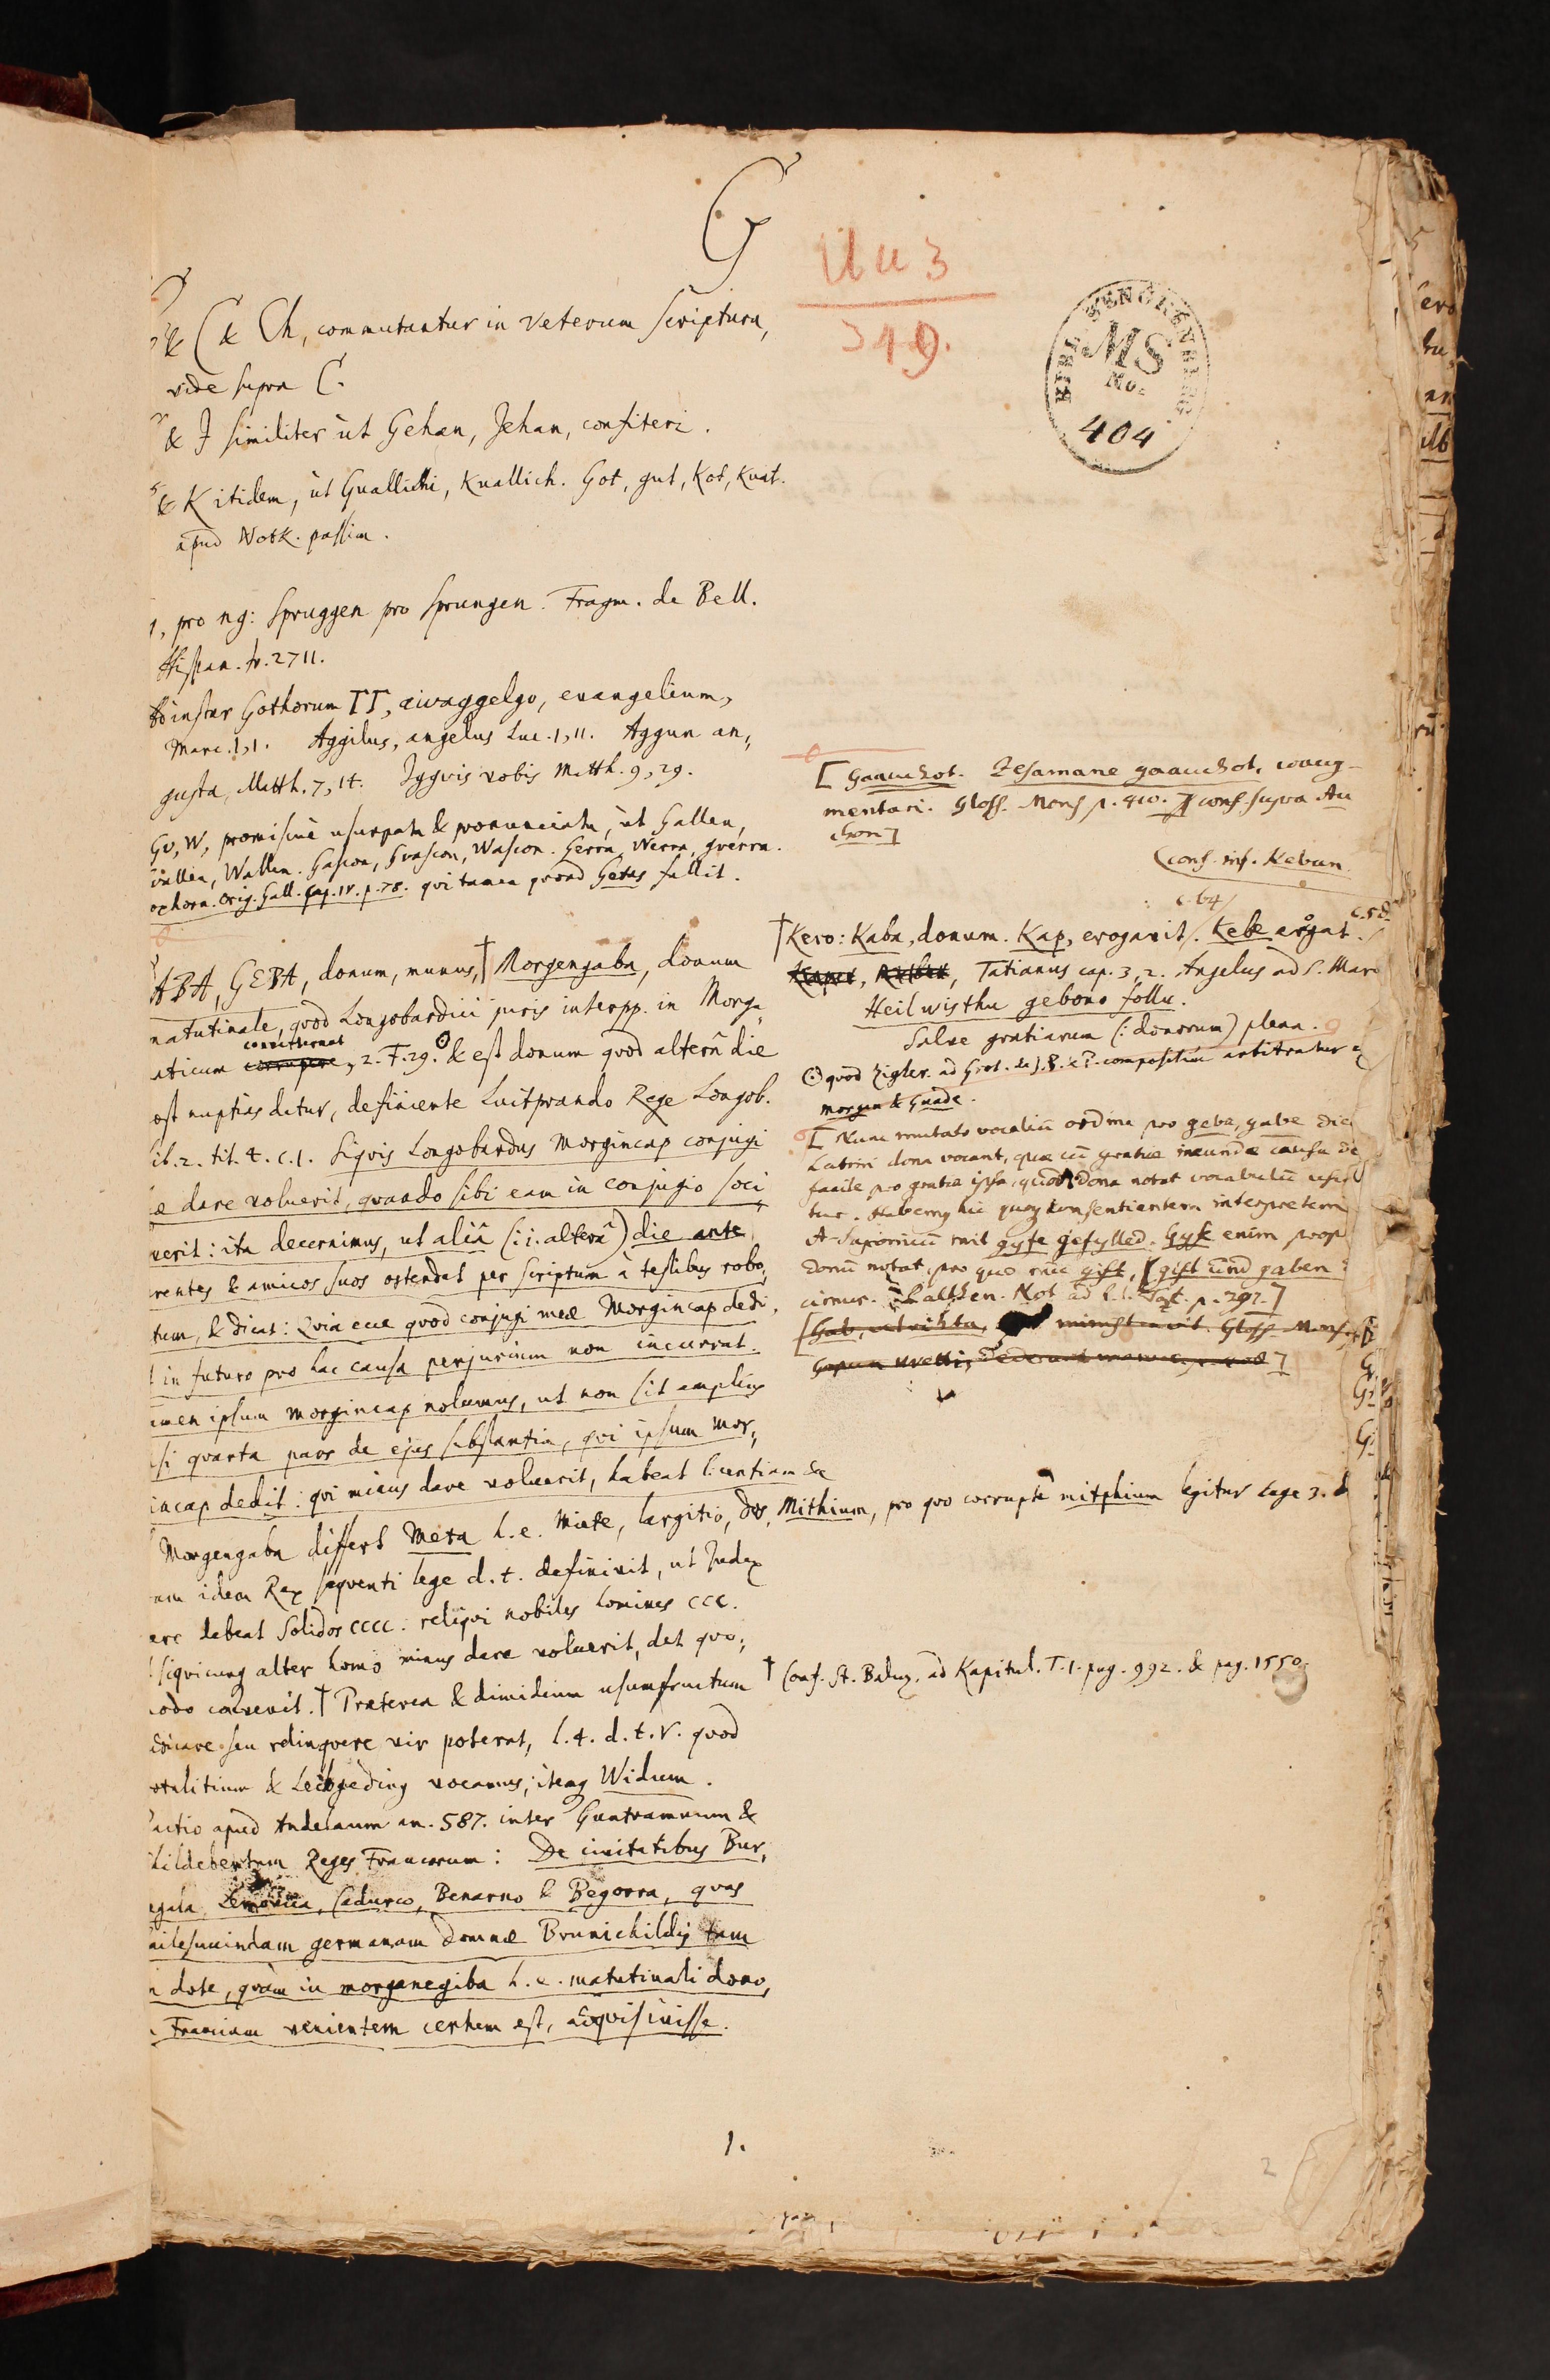 G
Uu 3
319.
MS
No.
404
& C & Ch, commutantur in veterum scriptura,
vide supra C.
& J similiter ut Gehan, Jehan, confiteri.
& K itidem, ut Guallichi, Kuallich. Got, gut, Kot, Kuat.
apud Notk. passim.
pro ng: Spruggen pro sprungen. Fragm. de Bell.
Hispan. v. 2711.
instar Gothorum ΓΓ, aivaggelgo, euangelium,
Marc. 1,1. Aggilus, angelus Luc. 1,11. Aggun an,
gusta, Matth. 7,14. Iggvis vobis Matth. 9,29.
GV, W, promiscue usurpata & pronunciata, ut Gallen,
Wallen. Gascon, Gvascon, Wascon. Gerra, Werra, gverra.
orig. Gall. cap. IV. p. 78. qui tamen quoad Getas fallit.
[Gaauchot. Zesamane gaauchot, coaug-
mentari. Gloss. Mons p. 410.] conf. supra Au
chon]
(conf. inf. Keban.
ABA, GEBA, donum, munus,† Morgengaba, donum
matutinale, quod Longobardici juris interpp. in Morga,
aticum corrupere, 2. F. 29. ⊙ & est donum quod alterâ die
ost nuptias datur, definiente Luitprando Rege Longob.
ib. 2. tit. 4. c. 1. Siqvis Longobardus Morgincap conjugi
e dare voluerit, quando sibi eam in conjugio soci,
verit: ita decernimus, ut aliâ (:i. alterâ) die ante
rentes & amicos suos ostendat per scriptum à testibus robo,
tum, & dicat: Quia ecce quod conjugi meæ Morgincap dedi,
in futuro pro hac causa perjurium non incurrat.
amen ipsum morgincap nolumus, ut non sit amplius
si quarta pars de ejus substantia, qui ipsum mor,
incap dedit: qui minus dare voluerit, habeat licentiam &c
Morgengaba differt Meta h.e. Miete, largitio, dos, Mithium, pro quo corruptè mitphium legitur lege 3. d
am idem Rex sequenti lege d. t. definivit, ut Judex
are debeat Solidos CCCC. reliqvi nobiles homines CCC.
siqvicunq alter homo minus dare voluerit, det quo,
odo convenit.† Præterea & dimidium usumfructum
dicare seu relinquere vir poterat, l. 4. d. t. V. quod
otalitium & Leibgeding vocamus, itemq Widum.
actio apud Andelaum an. 587. inter Guntramnum &
hildebertum Reges Francorum: De civitatibus Bur,
egala, Lemovica, Cadurco, Benarno & Begorra, quas
ailesuuindam germanam domnæ Brunichildis tam
n dote, quàm in morganegiba h.e. matutinali dono,
Franciam venientem certum est, adquisivisse.
c. 64/ c. 58
†Kero: Kaba, donum. Kap, erogavit/. Kebe ergat./
Tatianus cap. 3, 2. Angelus ad S. Mar
Heil wis thu gebono follu.
Salve gratiarum (:donorum) plena.
⊙ quod Zigler. ad Grot. de J. B. & P. compositum arbitratur
morgen & Gnade.
[Nunc mutato vocaliũ ordine pro geba, gabe dic
Latini dona vocant, quæ cũ gratiæ ineundæ causa de
facile pro gratia ipsa, quod dona notat vocabulũ usur
tur. Habemq hic quoq consentientem interpretem
A-Saxonicũ mit gyfe gefylled. Gyfe enim prop
donũ notat, pro quo nũc gift, [gift und gaben
cimur. Palthen. Not ad Tat. p. 297.]
† Conf. St. Baluz. ad Kapitul. T. 1. pag. 992. & pag. 1550.
1.
2